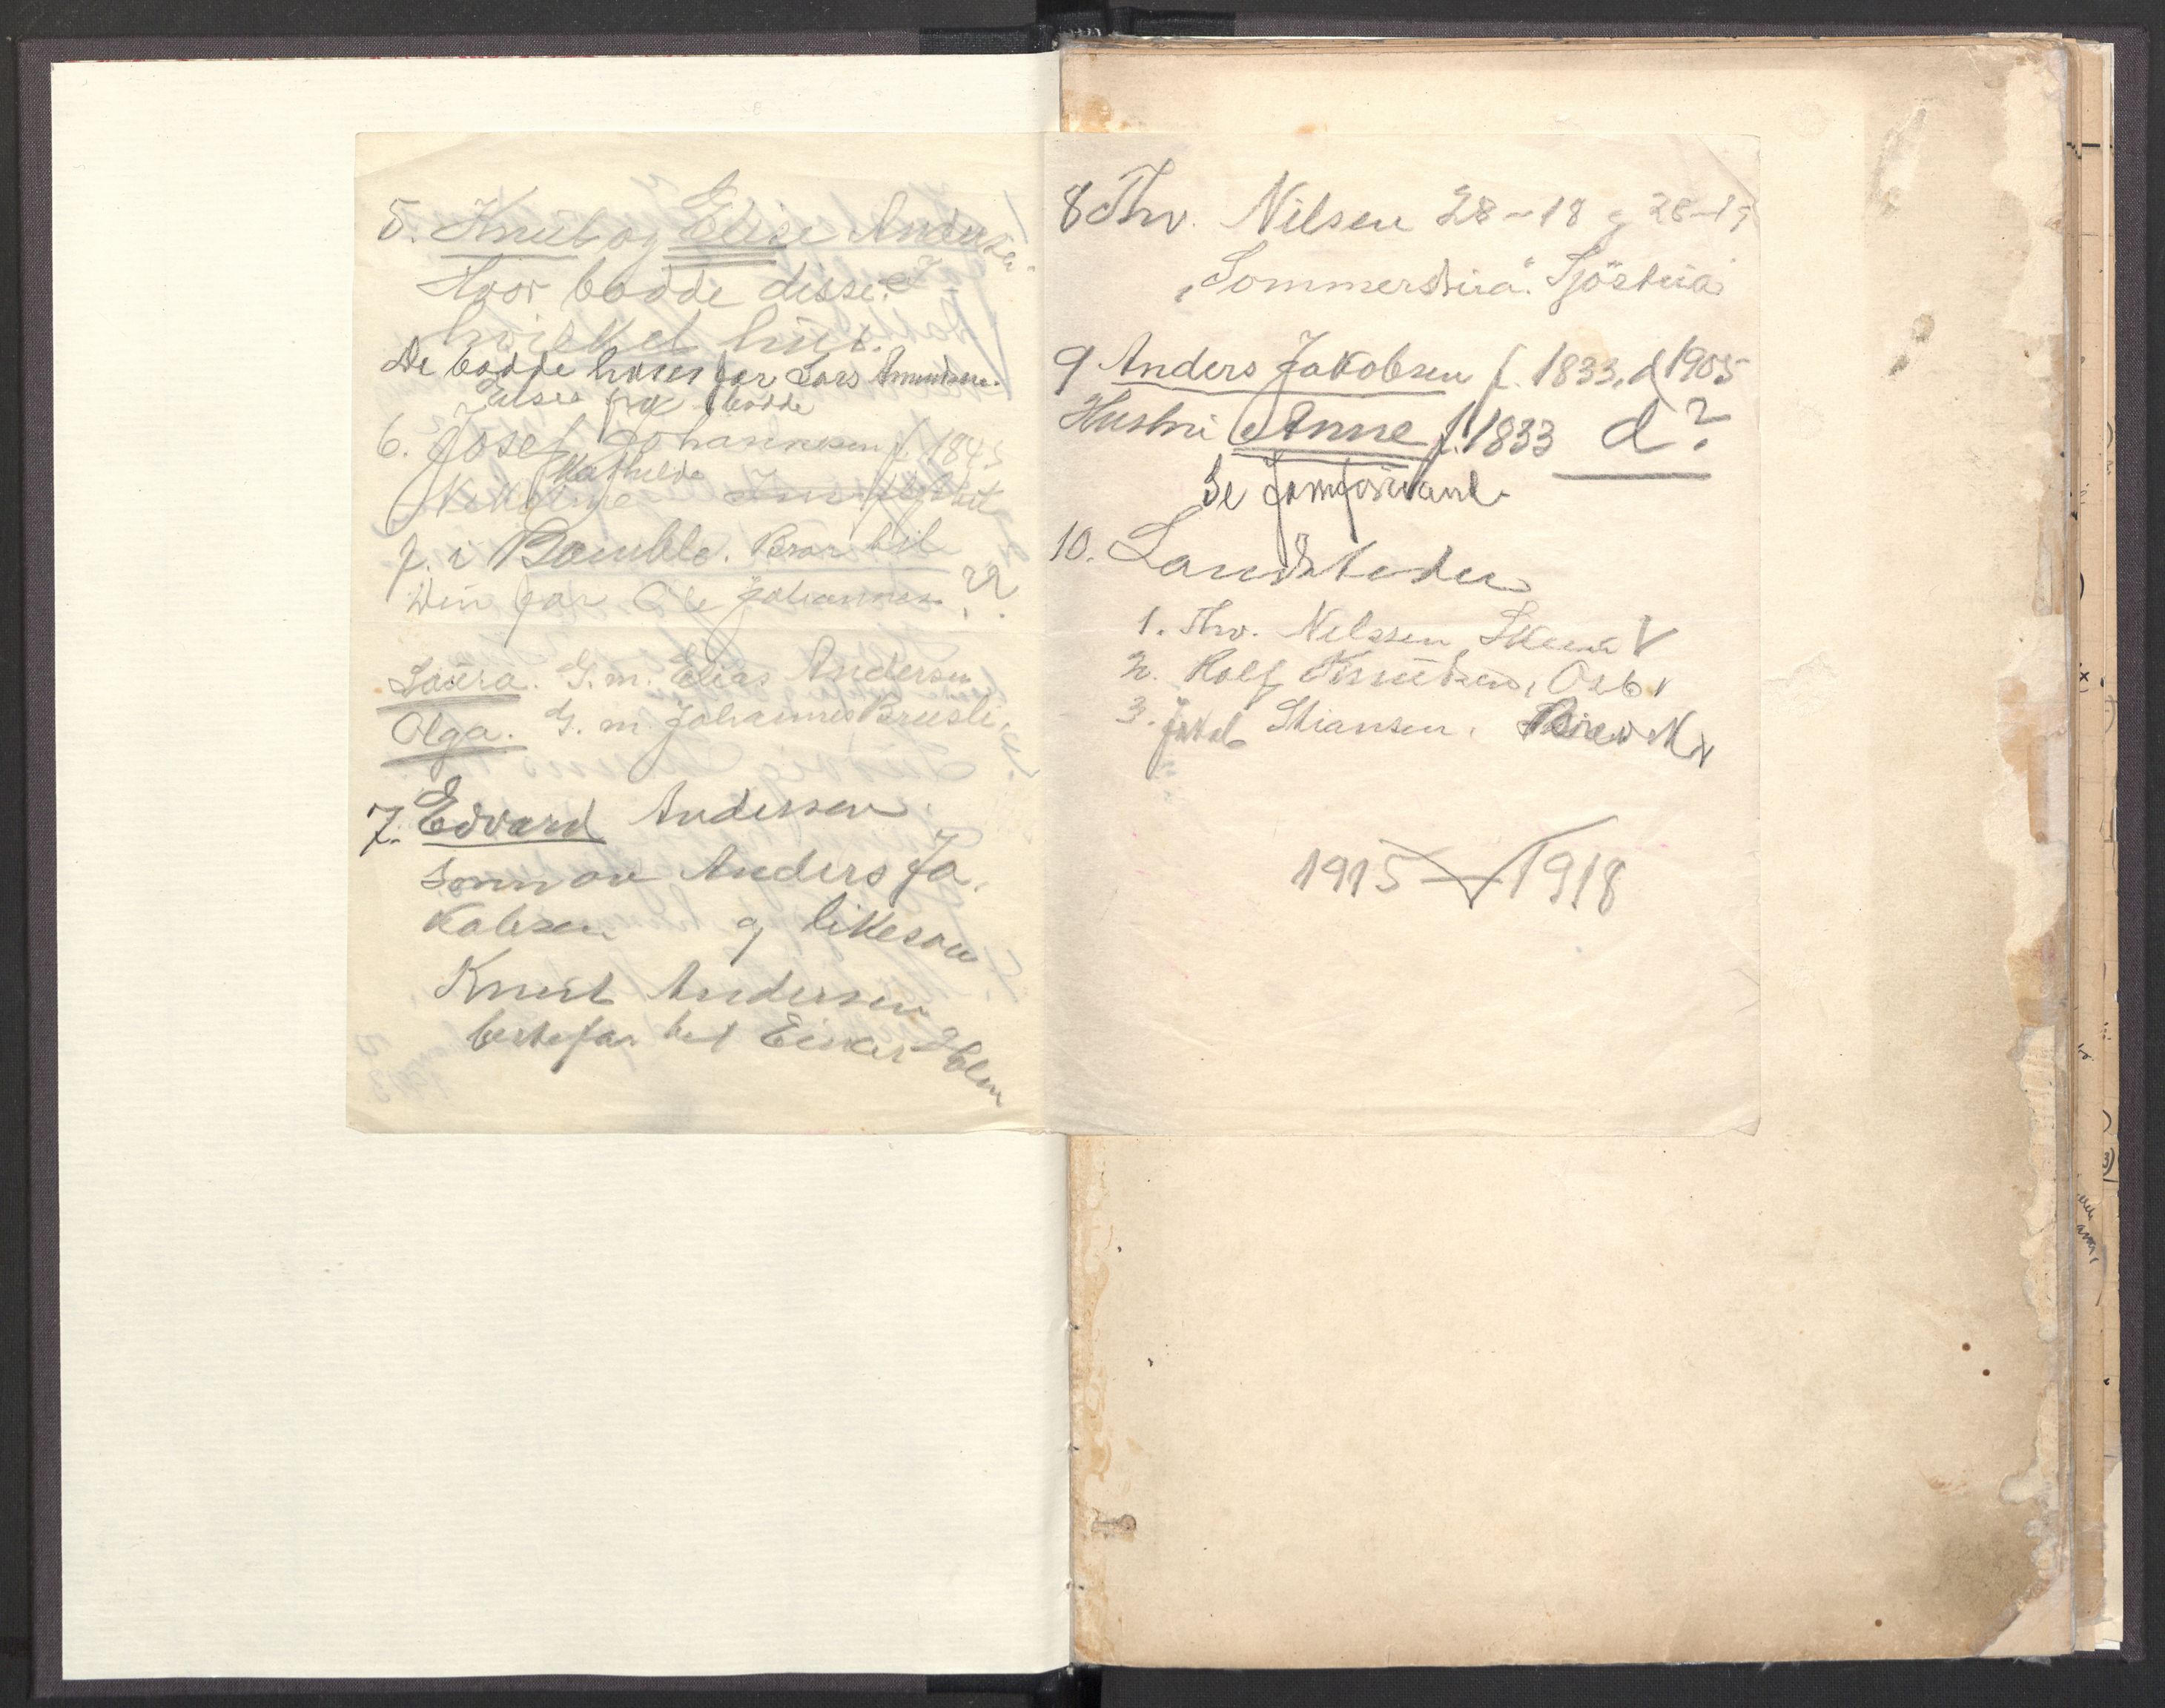 5. Knut og Elise Andersen.
Hvor bodde disse?
hvilket hus.
De bodde huset før Lars Amundsen.
bodde
6. Josef Johannesen f. 184
Mathilde
f. i Bamble. Bror til
Din far Ole Johannesen ??
Laura. G. m. Elias Andersen
Olga. G. m. Johannes Brusli.
7. Edvard Andersen
Sønn av Anders Ja-
kobsen og likesom
Knut Andersen
bestefar til Einar Holm
8 Thv. Nilsen 28-18 g 28-19
„Sommerstua". Sjöstua
9 Anders Jakobsen f. 1833, d 1905
Hustru Anne f. 1833 d?
Se Jomfruland
10. Landsteder
1. Thv. Nilssen, Skien V
2. Rolf Knutsen, Oslo v
3. Jakob Stiansen.
1915 - 1918